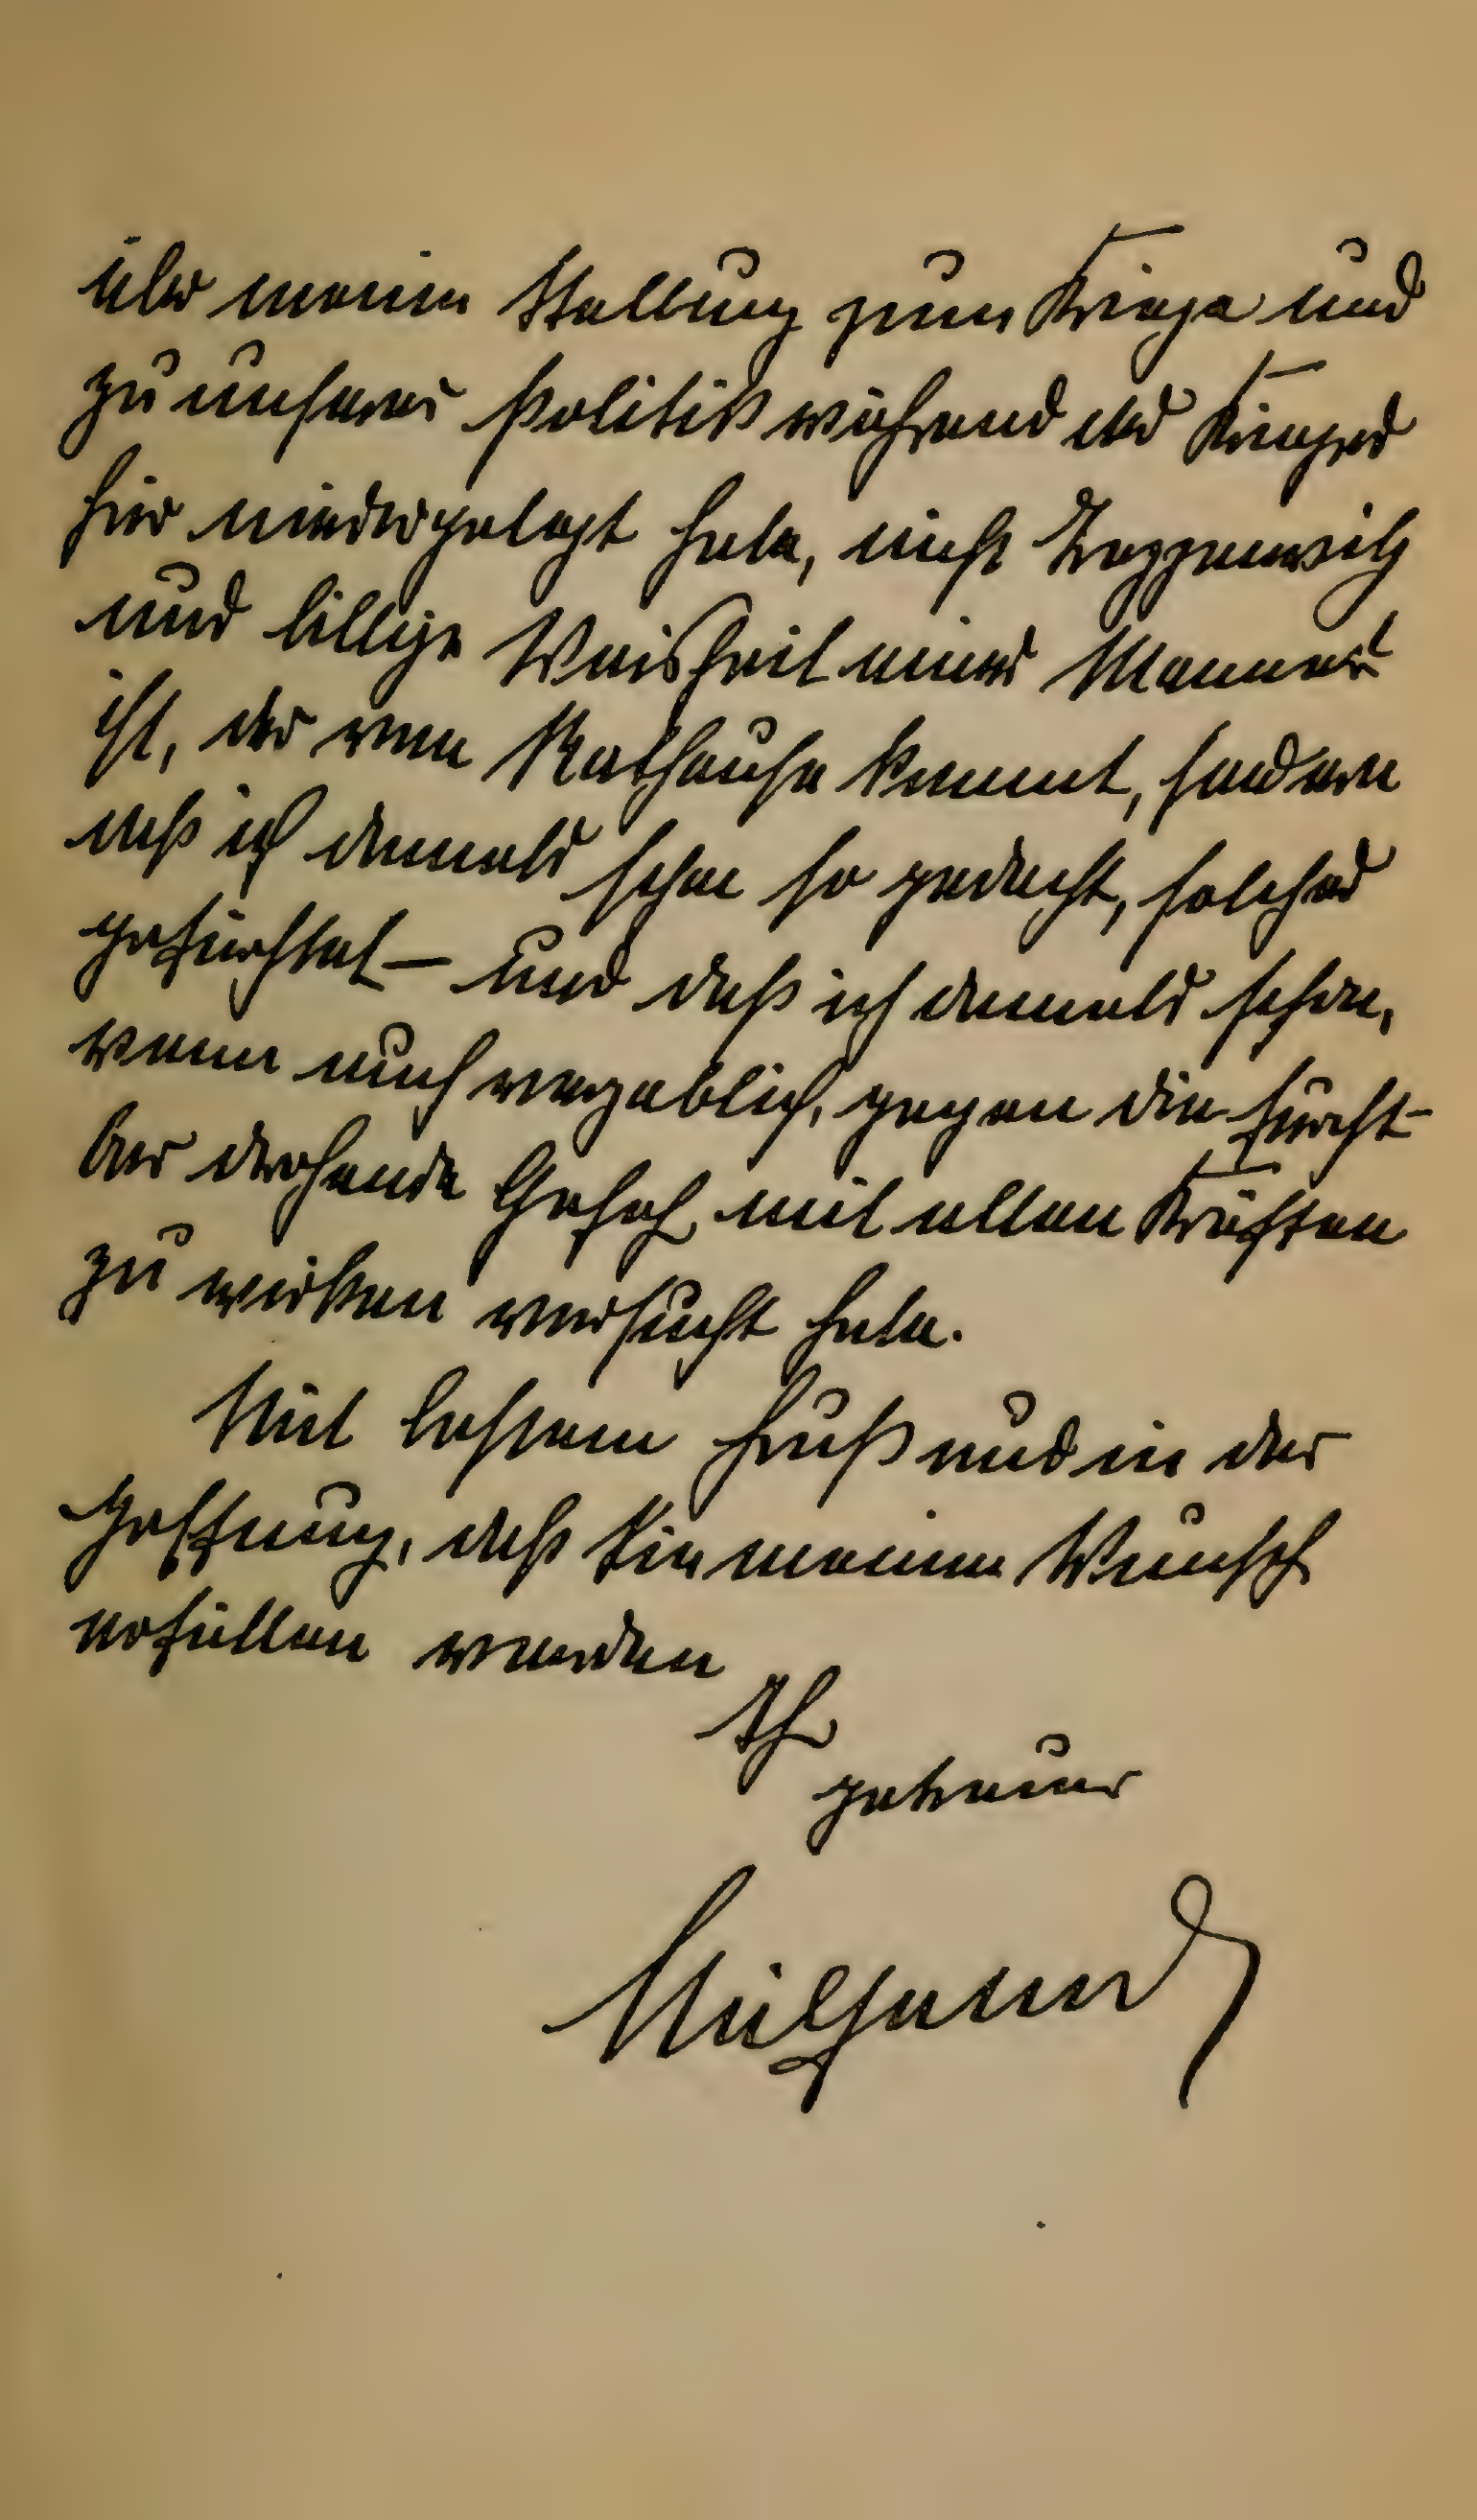 über meine Stellung zum Kriege und
zu unserer Politik während des Krieges
hier niedergelegt habe, nicht Treppenwitz
und billige Weisheit eines Mannes
ist, der vom Rathause kommt, sondern
daß ich damals schon so gedacht, solches
gefürchtet — und daß ich damals schon,
wenn auch vergeblich, gegen die furcht-
bar drohende Gefahr mit allen Kräften
zu wirken versucht habe.
Mit bestem Gruß und in der
Hoffnung, daß Sie meinen Wunsch
erfüllen werden
Ihr
getreuer